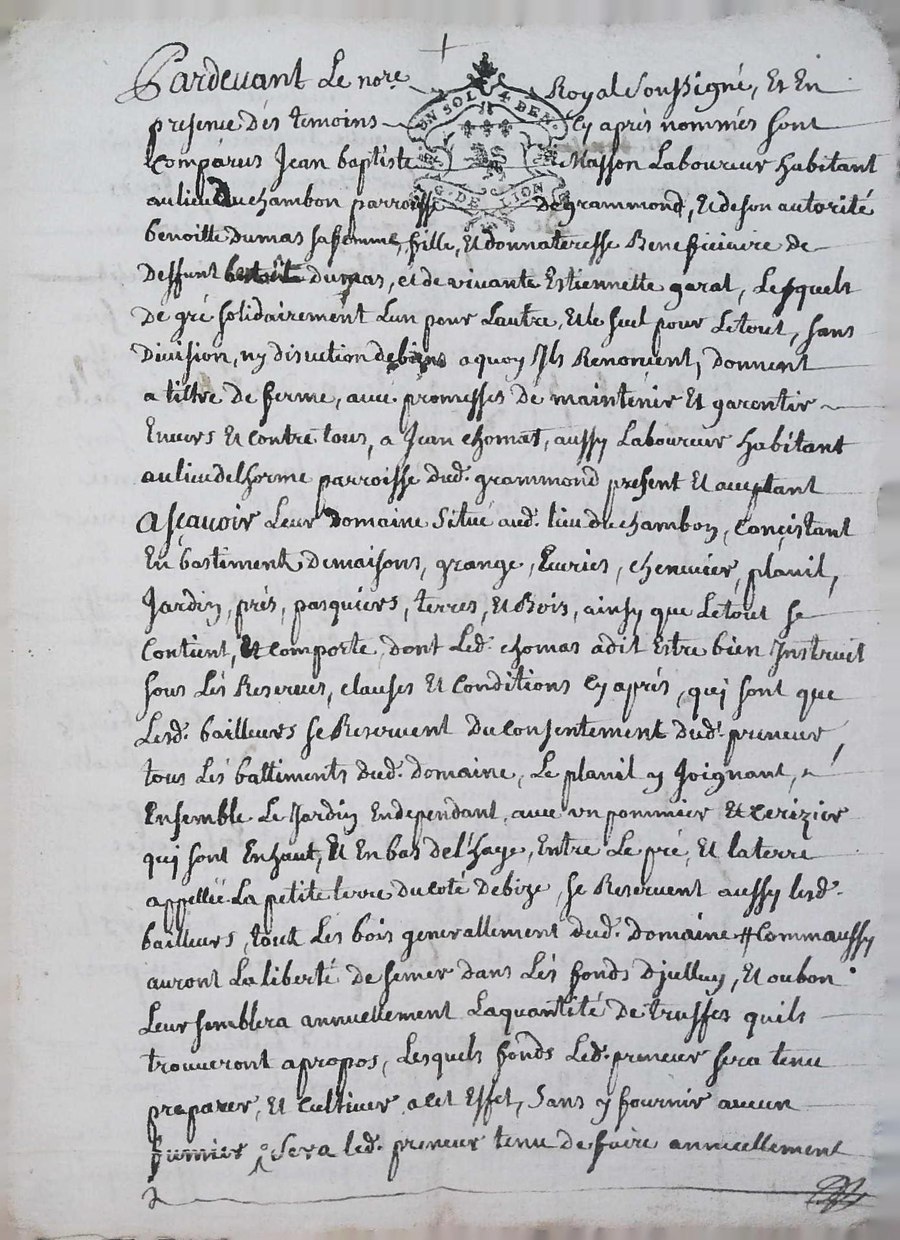 Pardevant Le no.re Royal Soussigné, Et En
UN SOL 4 DEN.
presence dés temoins Cy aprés nommés sont
Comparus Jean baptiste Masson Laboureur habitant
G. DE LION
au lieu Du chambon parroisse de grammond, Et de son autorité
benoitte Dumas sa femme, fille, Et donnateresse Beneficiaire de
Deffunt dumas, et de vivante Estiennette garat, Lesquels
De gré solidairement L'un pour L'autre, Et le seul pour Le tout, sans
Division, ny discution de biens a quoy Ils Renoncent, donnent
a tiltre de ferme, avec promesses de maintenir Et garentir
Envers Et contre tous, a Jean chomat, aussy Laboureur habitant
au lieu delhorme parroisse dud. grammond present Et acceptant
Asçavoir Leur Domaine Situé aud. lieu du chambon, Consistant
En bastiment de maisons, grange, Ecuries, chenevier, planil,
Jardin, prés, pasquiers, terres, Et Bois, ainsy que Le tout se
Contient, Et comporte, dont Led. chomas a dit Estre bien Instruit
sous Lés Reserves, clauses Et Conditions Cy aprés, qui sont que
Lesd. bailleurs se Reservent Du consentement dud. preneur,
tous Lés battiments dud. domaine, Le planil y Joignant,
Ensemble Le Jardin En dependant, avec un pommier Et Cerizier
qui sont En haut, Et En bas de l'haye, Entre Le pré, Et la terre
appellée La petite terre du coté De bize, se Reservent aussy lesd.
bailleurs, tout Lés bois generallement dud. domaine # Comm aussy
auront La liberté de semer dans Lés fonds D'julluy, Et ou bon
Leur semblera annuellement La quantité De truffes quils
trouveront apropos, Lesquels fonds Led. preneur sera tenu
preparer, Et cultiver a cet Effet, Sans y fournir aucun
fumier, Sera led. preneur tenu de faire annuellement